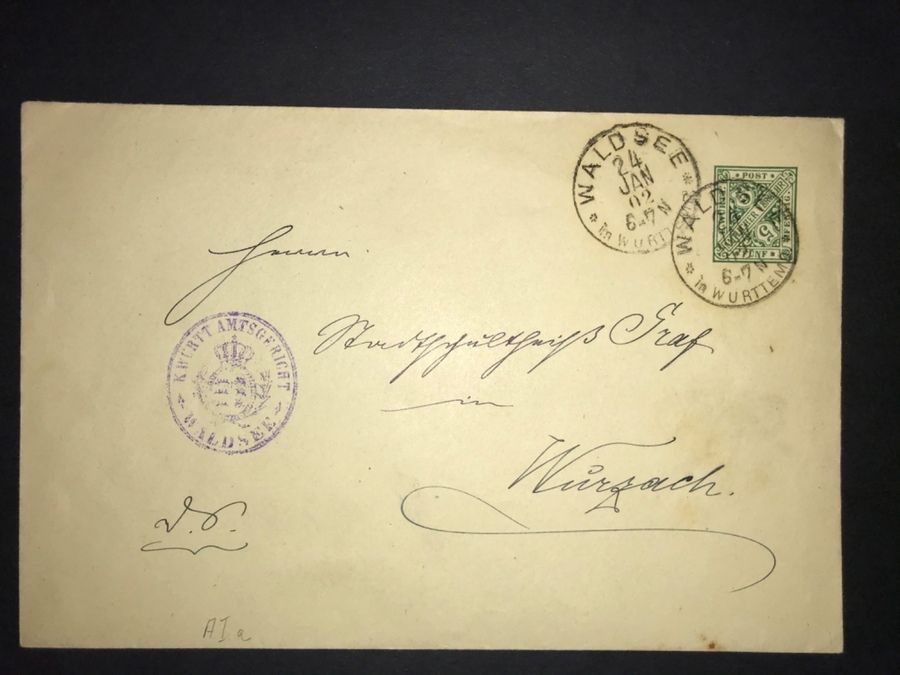 WALDSEE
24
JAN
02
6-7 N
* in WÜRTT
WALDSEE
6-7 N
* in WÜRTTEM
POST
FÜNF
Herrn
Stadtschultheiß Graf
in
Wurzach.
K. WÜRTT. AMTSGERICHT
WALDSEE
D. S.
A I a